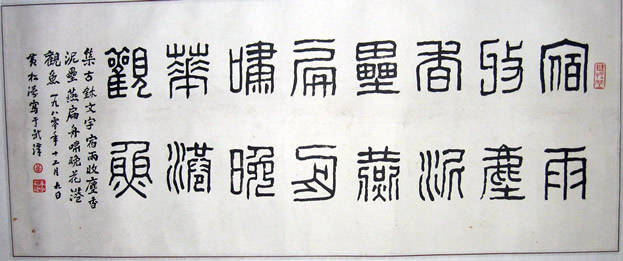 宿雨
收塵
香泥
壘燕
扁舟
嘯晚
華港
觀魚
集古鉥文字宿雨收塵香
泥壘燕扁舟嘯晚花港
觀魚一九八零年十二月九日
黄松濤寫于武漢